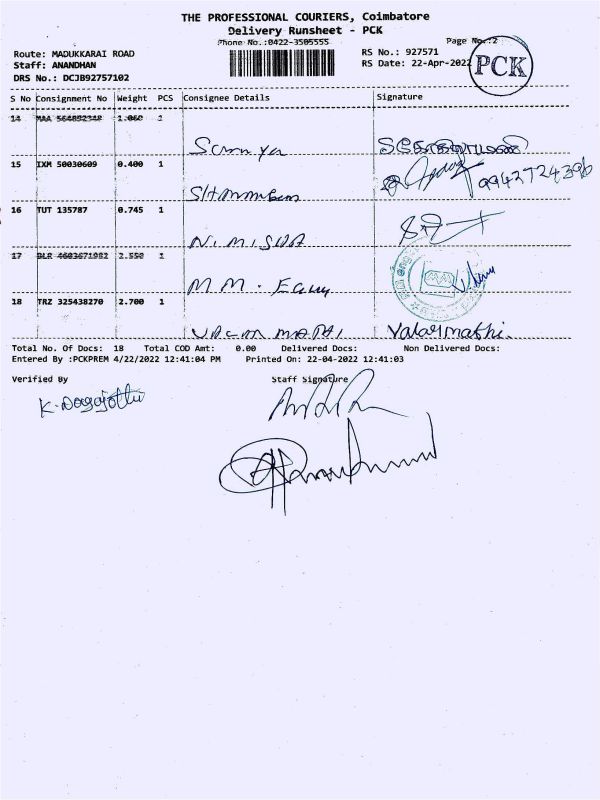 THE PROFESSIONAL COURIERS, Coimbatore
Delivery Runsheet - PCK
Phone No.:0422-3505555
Page No.:2
Route: MADUKKARAI ROAD
RS No.: 927571
Staff: ANANDHAN
RS Date: 22-Apr-2022
PCK
DRS No.: DCJB92757102
S No Consignment No Weight PCS Consignee Details Signature
14 MAA 564892348 1.060 1
Saranya
15 IXM 50030609 0.400 1
9942724396
16 TUT 135787 0.745 1
N. M I SUBA
17 BLR 4603671982 2.550 1
M M .
18 TRZ 325438270 2.700 1
VALAR MATHI Valarmathi.
Total No. Of Docs: 18 Total COD Amt: 0.00 Delivered Docs: Non Delivered Docs:
Entered By :PCKPREM 4/22/2022 12:41:04 PM Printed On: 22-04-2022 12:41:03
Verified By Staff Signature